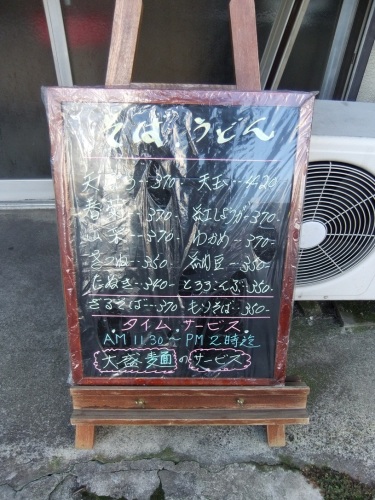 そば うどん
天ぷら---370- 天玉---420-
春菊---370- 紅しょうが-370-
山菜---370- わかめ---370-
きつね---350- 納豆---350-
たぬき---340- とろろこんぶ-350-
ざるそば---370- もりそば-350-
タイム.サービス.
AM 11 30〜PM 2時迄
大盛 麺のサービス